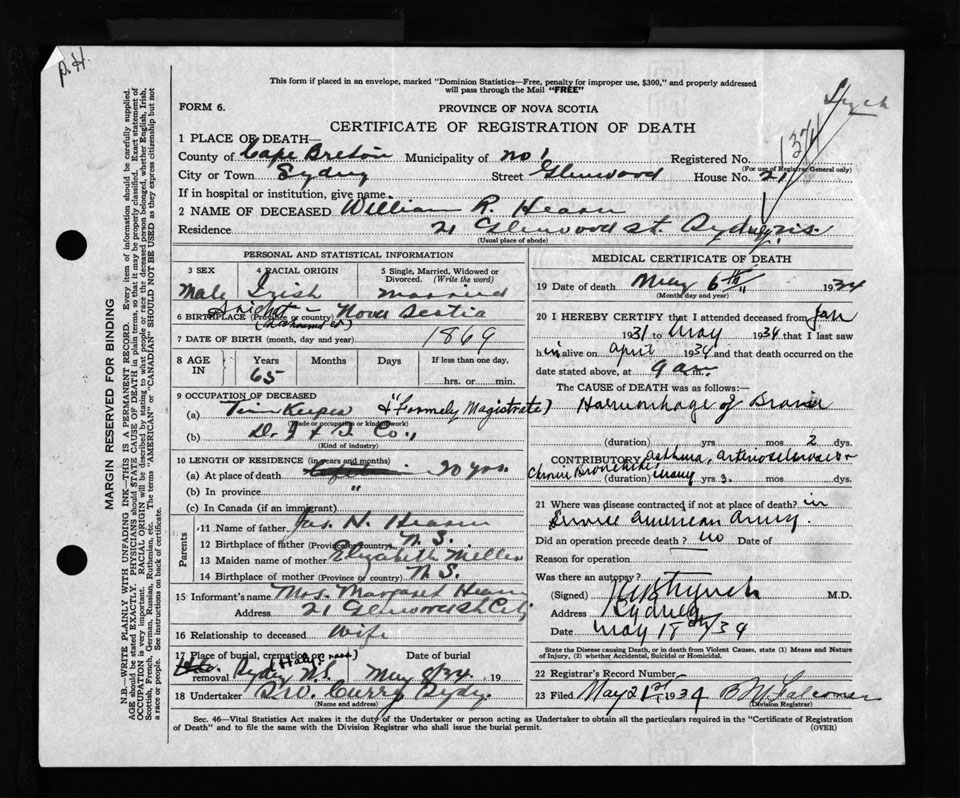 P.H.
This form if placed in an envelope, marked "Dominion Statistics—Free, penalty for improper use, $300," and properly addressed
will pass through the Mail "FREE"
FORM 6.
PROVINCE OF NOVA SCOTIA
CERTIFICATE OF REGISTRATION OF DEATH
1374
1 PLACE OF DEATH—
County of Cape Breton Municipality of No 1 Registered No.
(For use of Registrar General only)
City or Town Sydney Street Glenwood House No. 21
If in hospital or institution, give name
2 NAME OF DECEASED William R. Hearn
Residence 21 Glenwood St. Sydney, N.S.
(Usual place of abode)
PERSONAL AND STATISTICAL INFORMATION
3 SEX 4 RACIAL ORIGIN 5 Single, Married, Widowed or Divorced. (Write the word)
Male Irish married
6 BIRTHPLACE (Province or country) Nova Scotia
7 DATE OF BIRTH (month, day and year) 1869
8 AGE IN Years Months Days If less than one day,
65 hrs. or min.
9 OCCUPATION OF DECEASED
(a) Time Keeper & (Formely Magistrate)
(Trade or occupation or kind of work)
(b) Co.,
(Kind of industry)
10 LENGTH OF RESIDENCE (in years and months)
(a) At place of death 20 yrs.
(b) In province "
(c) In Canada (if an immigrant)
Parents
11 Name of father Jas. H. Hearn
12 Birthplace of father (Province or country) N.S.
13 Maiden name of mother Elizabeth Miller
14 Birthplace of mother (Province or country) N.S.
15 Informant's name Mrs. Margaret Hearn
Address 21 Glenwood St City
16 Relationship to deceased Wife
17 Place of burial, cremation or removal Date of burial
Sydney N.S. May 8/34 19
18 Undertaker Curry Sydney
(Name and address)
MEDICAL CERTIFICATE OF DEATH
19 Date of death May 6th " 1934
(Month day and year)
20 I HEREBY CERTIFY that I attended deceased from Jan
1931 to May 1934 that I last saw
him alive on April 1934 and that death occurred on the
date stated above, at 9 a.m.
The CAUSE OF DEATH was as follows:—
Haemorrhage of Brain
(duration) yrs. mos 2 dys.
CONTRIBUTORY asthma, arteriosclerosis &
Chronic Bronchitis (duration) many yrs. mos dys.
21 Where was disease contracted, if not at place of death? in
Service American Army.
Did an operation precede death? no Date of
Reason for operation
Was there an autopsy?
(Signed) M.D.
Address Sydney
Date May 18th/34
State the Disease causing Death, or in death from Violent Causes, state (1) Means and
Nature of Injury, (2) whether Accidental, Suicidal or Homicidal.
22 Registrar's Record Number
23 Filed May 21st 1934
(Division Registrar)
Sec. 46—Vital Statistics Act makes it the duty of the Undertaker or person acting as Undertaker to obtain all the particulars required in the "Certificate of Registration
of Death" and to file the same with the Division Registrar who shall issue the burial permit. (OVER)
MARGIN RESERVED FOR BINDING
N.B.—WRITE PLAINLY WITH UNFADING INK—THIS IS A PERMANENT RECORD. Every item of information should be carefully supplied.
AGE should be stated EXACTLY. PHYSICIANS should STATE CAUSE OF DEATH in plain terms, so that it may be properly classified. Exact statement of
OCCUPATION is very important. RACIAL ORIGIN will be described by stating to what people or race the deceased person belonged, whether English, Irish,
Scottish, French, German, Russian, Ruthenian, etc. The terms "AMERICAN" or "CANADIAN" SHOULD NOT BE USED as they express citizenship but not
a race or people. See instructions on back of certificate.